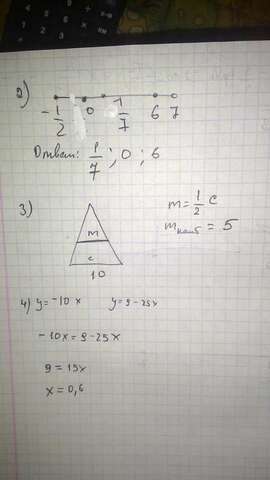 2)
-1/2 0 1/7 6 7
Ответ: 1/7 ; 0 ; 6
3)
m
c
10
m = 1/2 c
m наиб = 5
4) y = -10x y = 9 - 25x
-10x = 9 - 25x
9 = 15x
x = 0,6